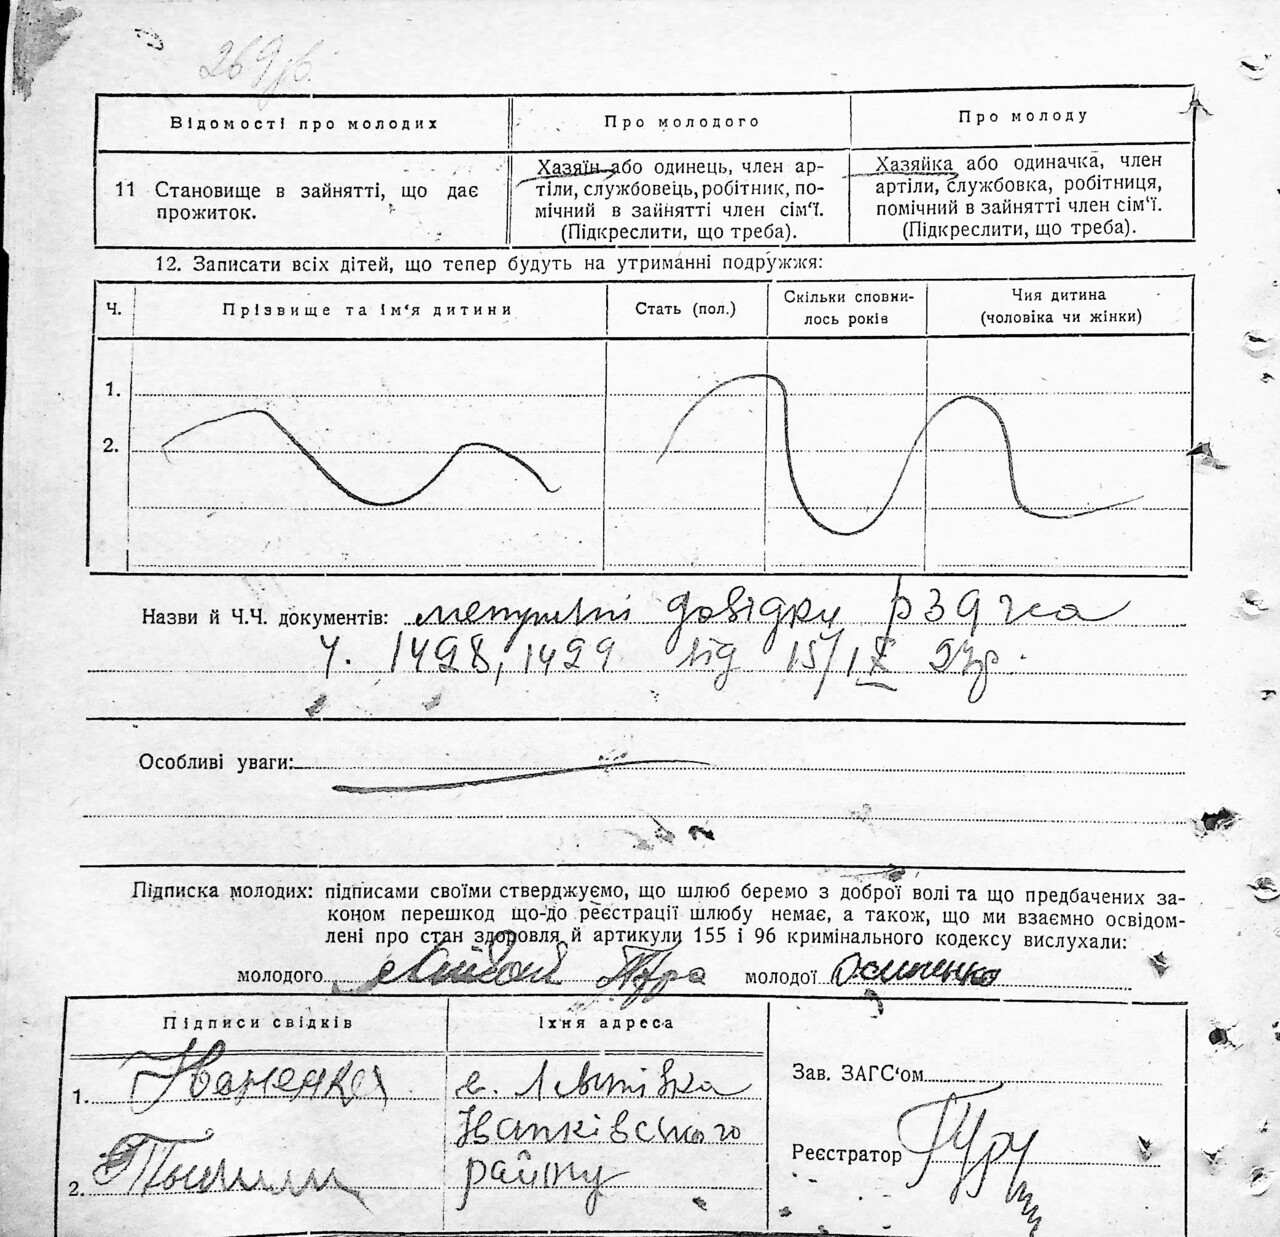 269 зв.
Відомості про молодих
Про молодого
Про молоду
11 Становище в зайнятті, що дає
прожиток.
Хазяїн або одинець, член ар-
тіли, службовець, робітник, по-
мічний в зайнятті член сім‘ї.
(Підкреслити, що треба).
Хазяйка або одиначка, член
артіли, службовка, робітниця,
помічний в зайнятті член сім‘ї.
(Підкреслити, що треба).
12. Записати всіх дітей, що тепер будуть на утриманні подружжя:
Ч.
Прізвище та ім‘я дитини
Стать (пол.)
Скільки сповни-
лось років
Чия дитина
(чоловіка чи жінки)
1.
2.
Назви й Ч.Ч. документів: довідки
Ч. 1428, 1429 від 15/IX 27р.
Особливі уваги:
Підписка молодих: підписами своїми стверджуємо, що шлюб беремо з доброї волі та що предбачених за-
коном перешкод що-до реєстрації шлюбу немає, а також, що ми взаємно освідом-
лені про стан здоровля й артикули 155 і 96 кримінального кодексу вислухали:
молодого молодої Осипенко
Підписи свідків
Їхня адреса
1. Іваненко
с.
Іванківського
району
2.
Зав. ЗАГС‘ом
Реєстратор